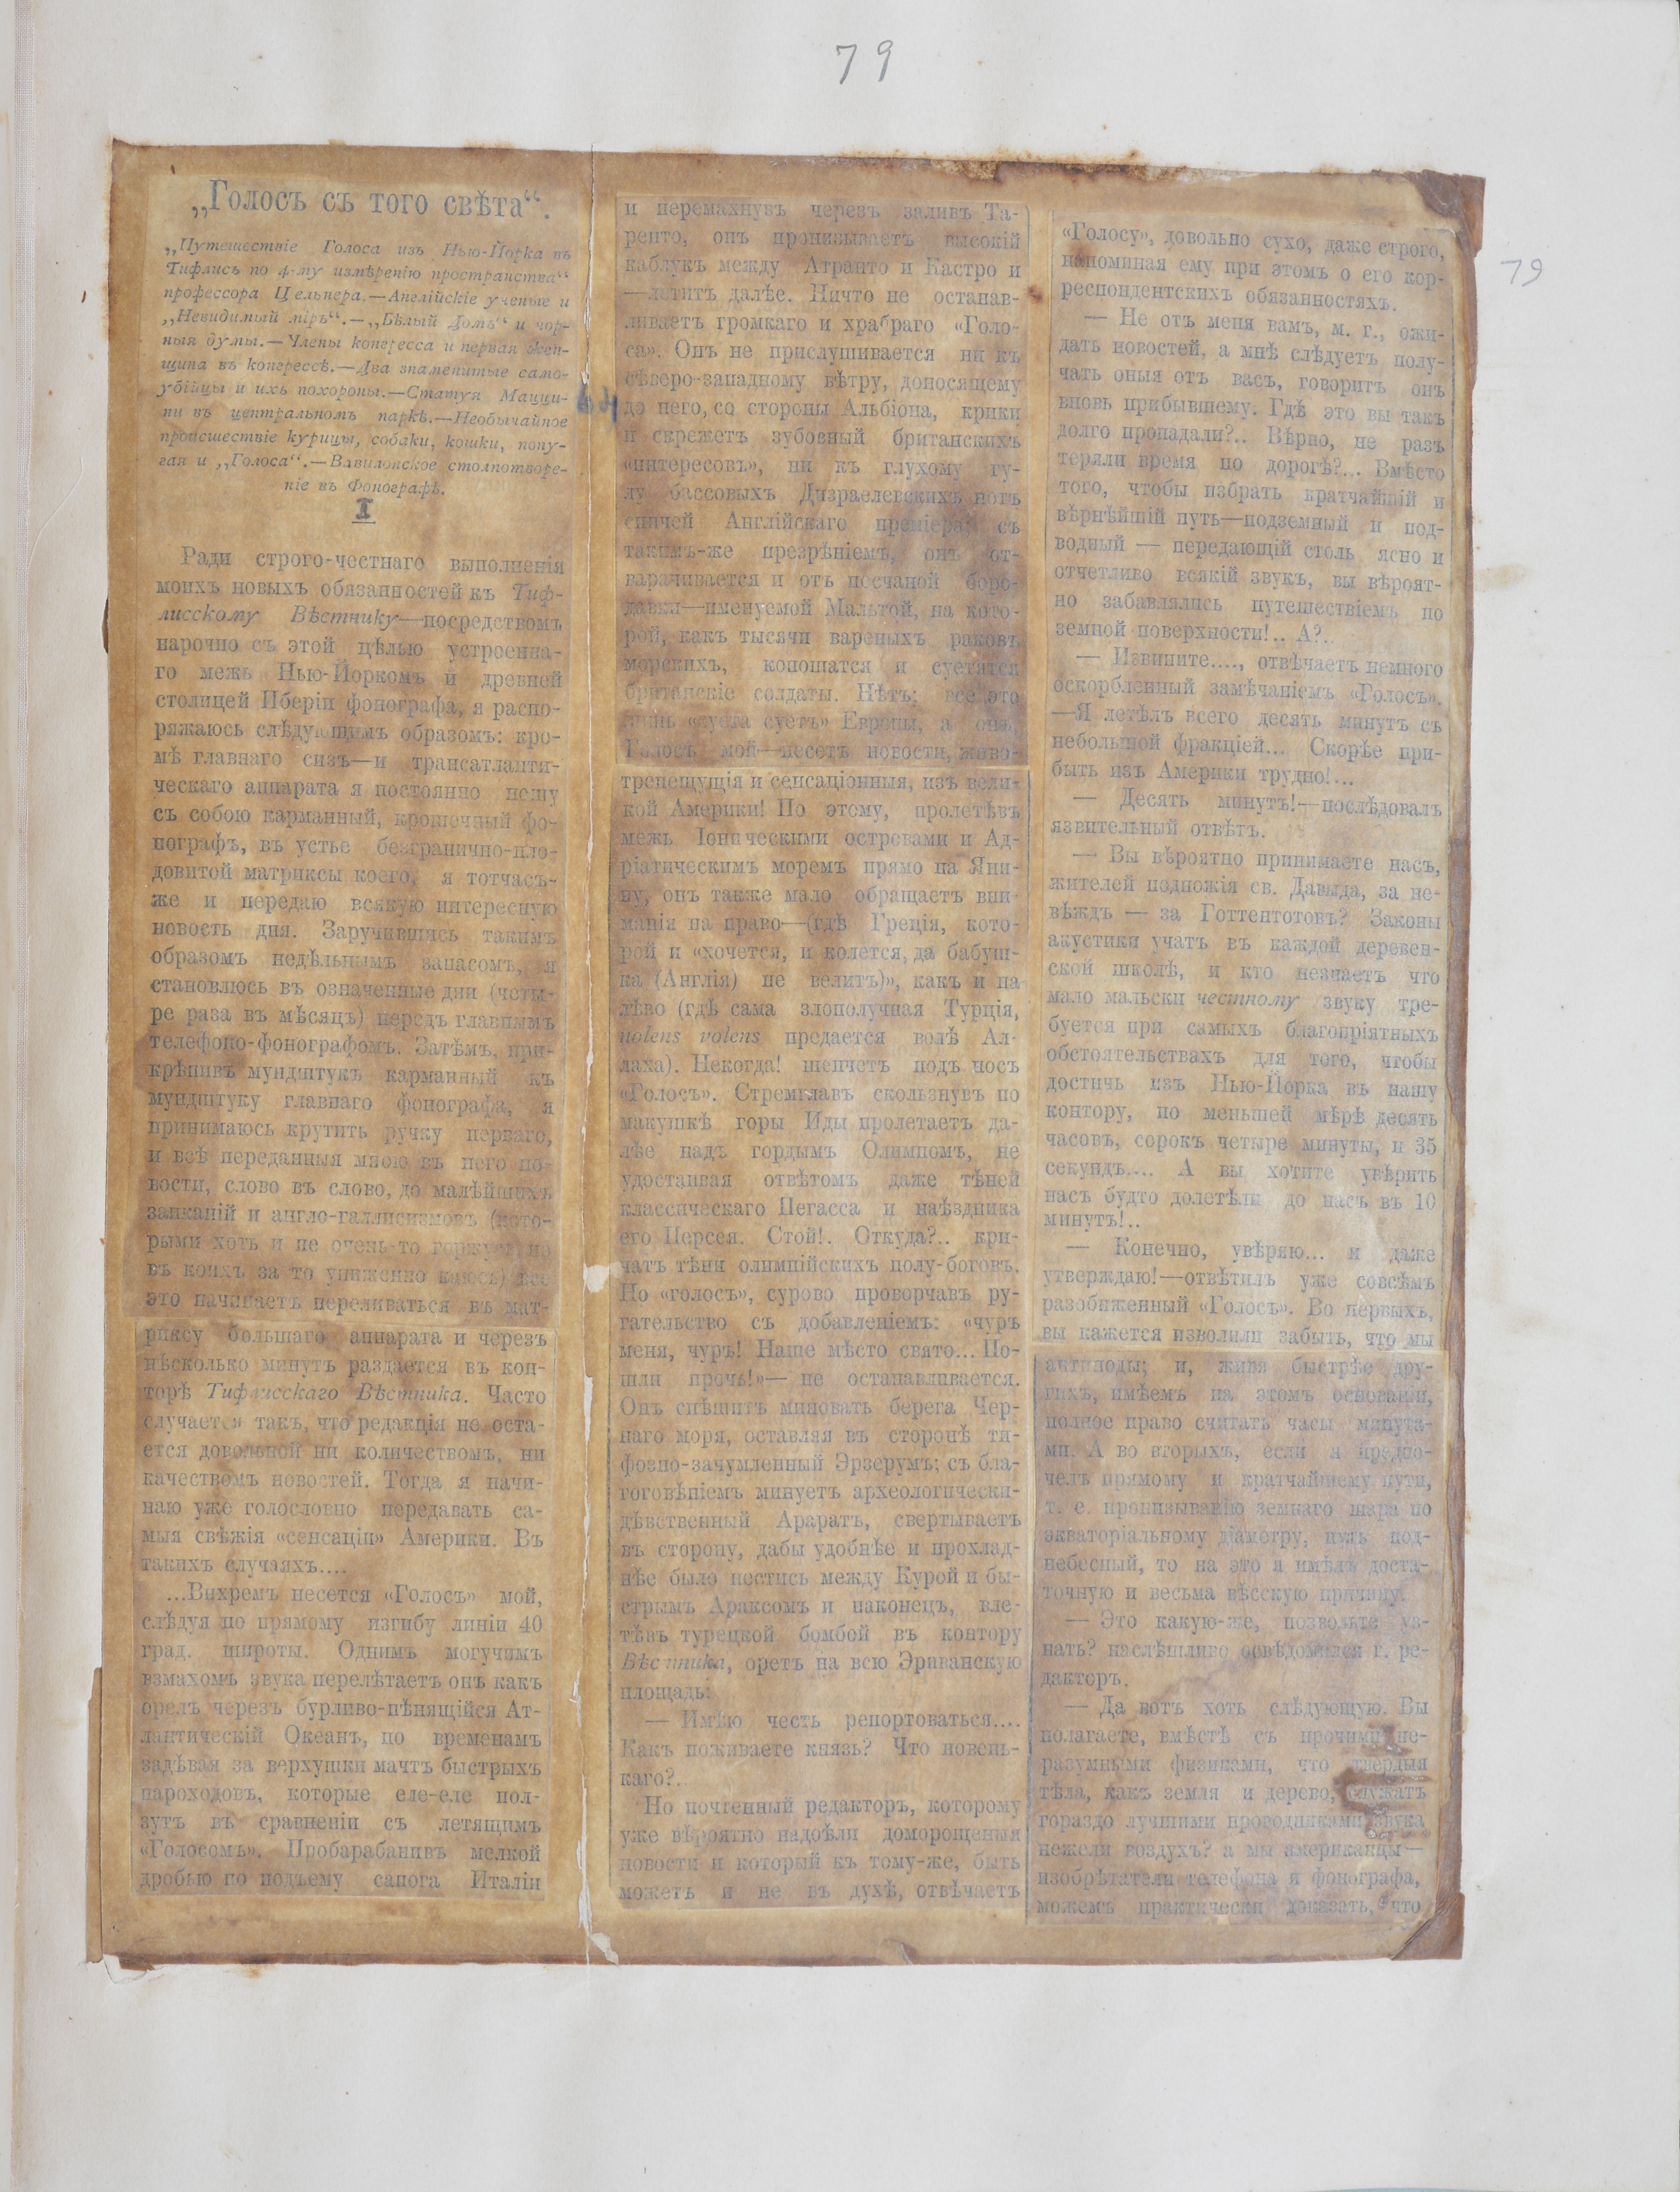 79
79
„Голосъ съ того свѣта“.
„Путешествіе Голоса изъ Нью-Йорка въ
Тифлисъ по 4-му измѣренію пространства“
профессора Цельнера.—Англійскіе ученые и
„Невидимый міръ“.—„Бѣлый Домъ“ и чор-
ныя думы.—Члены конгресса и первая жен-
щина въ конгрессѣ.—Два знаменитые само-
убійцы и ихъ похороны.—Статуя Мацци-
ни въ центральномъ паркѣ.—Необычайное
происшествіе курицы, собаки, кошки, попу-
гая и „Голоса“.—Вавилонское столпотворе-
ніе въ Фонографѣ.
I
Ради строго-честнаго выполненія
моихъ новыхъ обязанностей къ Тиф-
лисскому Вѣстнику—посредствомъ
нарочно съ этой цѣлью устроенна-
го межь Нью-Йоркомъ и древней
столицей Иберіи фонографа, я распо-
ряжаюсь слѣдующимъ образомъ: кро-
мѣ главнаго сизъ—и трансатланти-
ческаго аппарата я постоянно ношу
съ собою карманный, крошечный фо-
нографъ, въ устье безгранично-пло-
довитой матриксы коего, я тотчасъ-
же и передаю всякую интересную
новость дня. Заручившись такимъ
образомъ недѣльнымъ запасомъ, я
становлюсь въ означенные дни (четы-
ре раза въ мѣсяцъ) передъ главнымъ
телефоно-фонографомъ. Затѣмъ, при-
крѣпивъ мундштукъ карманный къ
мундштуку главнаго фонографа, я
принимаюсь крутить ручку перваго,
и всѣ переданныя мною въ него но-
вости, слово въ слово, до малѣйшихъ
заиканій и англо-галлисизмовъ (кото-
рыми хоть и не очень-то горжусь, но
въ коихъ за то униженно каюсь) все
это начинаетъ переливаться въ мат-
риксу большаго аппарата и черезъ
нѣсколько минутъ раздается въ кон-
торѣ Тифлисскаго Вѣстника. Часто
случается такъ, что редакція не оста-
ется довольной ни количествомъ, ни
качествомъ новостей. Тогда я начи-
наю уже голословно передавать са-
мыя свѣжія «сенсаціи» Америки. Въ
такихъ случаяхъ....
...Вихремъ несется «Голосъ» мой,
слѣдуя по прямому изгибу линіи 40
град. широты. Однимъ могучимъ
взмахомъ звука перелѣтаетъ онъ какъ
орелъ черезъ бурливо-пѣнящійся Ат-
лантическій Океанъ, по временамъ
задѣвая за верхушки мачтъ быстрыхъ
пароходовъ, которые еле-еле пол-
зутъ въ сравненіи съ летящимъ
«Голосомъ». Пробарабанивъ мелкой
дробью по подъему сапога Италіи
и перемахнувъ черезъ заливъ Та-
ренто, онъ пронизываетъ высокій
каблукъ между Атранто и Кастро и
—летитъ далѣе. Ничто не останав-
ливаетъ громкаго и храбраго «Голо-
са». Онъ не прислушивается ни къ
сѣверо-западному вѣтру, доносящему
до него, со стороны Альбіона, крики
и скрежетъ зубовный британскихъ
«интересовъ», ни къ глухому гу-
лу бассовыхъ Дизраелевскихъ нотъ
спичей Англійскаго премiера; съ
такимъ-же презрѣніемъ, онъ от-
варачивается и отъ песчаной боро-
давки—именуемой Мальтой, на кото-
рой, какъ тысячи вареныхъ раковъ
морскихъ, копошатся и суетятся
британскіе солдаты. Нѣтъ; все это
лишь «суета суетъ» Европы, а онъ,
Голосъ мой—несетъ новости, живо-
трепещущія и сенсаціонныя, изъ вели-
кой Америки! По этому, пролетѣвъ
межь Іоническими островами и Ад-
ріатическимъ моремъ прямо на Яни-
ну, онъ также мало обращаетъ вни-
манія на право—(гдѣ Греція, кото-
рой и «хочется, и колется, да бабуш-
ка (Англія) не велитъ)», какъ и на
лѣво (гдѣ сама злополучная Турція,
nolens volens предается волѣ Ал-
лаха). Некогда! шепчетъ подъ носъ
«Голосъ». Стремглавъ скользнувъ по
макушкѣ горы Иды пролетаетъ да-
лѣе надъ гордымъ Олимпомъ, не
удостаивая отвѣтомъ даже тѣней
классическаго Пегасса и наѣздника
его Персея. Стой!. Откуда?.. кри-
чатъ тѣни олимпійскихъ полу-боговъ.
Но «голосъ», сурово проворчавъ ру-
гательство съ добавленіемъ: «чуръ
меня, чуръ! Наше мѣсто свято... По-
шли прочь!»— не останавливается.
Онъ спѣшитъ миновать берега Чер-
наго моря, оставляя въ сторонѣ ти-
фозно-зачумленный Эрзерумъ; съ бла-
гоговѣніемъ минуетъ археологически-
дѣвственный Араратъ, свертываетъ
въ сторону, дабы удобнѣе и прохлад-
нѣе было нестись между Курой и бы-
стрымъ Араксомъ и наконецъ, вле-
тѣвъ турецкой бомбой въ контору
Вѣстника, оретъ на всю Эриванскую
площадь:
— Имѣю честь репортоваться....
Какъ поживаете князь? Что новень-
каго?.
Но почтенный редакторъ, которому
уже вѣроятно надоѣли доморощеныя
новости и который къ тому-же, быть
можетъ и не въ духѣ, отвѣчаетъ
«Голосу», довольно сухо, даже строго,
напоминая ему при этомъ о его кор-
респондентскихъ обязанностяхъ.
— Не отъ меня вамъ, м. г., ожи-
дать новостей, а мнѣ слѣдуетъ полу-
чать оныя отъ васъ, говоритъ онъ
вновь прибывшему. Гдѣ это вы такъ
долго пропадали?.. Вѣрно, не разъ
теряли время по дорогѣ?... Вмѣсто
того, чтобы избрать кратчайшій и
вѣрнѣйшій путь—подземный и под-
водный — передающій столь ясно и
отчетливо всякій звукъ, вы вѣроят-
но забавлялись путешествіемъ по
земной поверхности!.. А?..
— Извините...., отвѣчаетъ немного
оскорбленный замѣчаніемъ «Голосъ».
—Я летѣлъ всего десять минутъ съ
небольшой фракціей... Скорѣе при-
быть изъ Америки трудно!...
— Десять минутъ!—послѣдовалъ
язвительный отвѣтъ.
— Вы вѣроятно принимаете насъ,
жителей подножія св. Давыда, за не-
вѣждъ — за Готтентотовъ? Законы
акустики учатъ въ каждой деревен-
ской школѣ, и кто незнаетъ что
мало мальски честному звуку тре-
буется при самыхъ благопріятныхъ
обстоятельствахъ для того, чтобы
достичь изъ Нью-Йорка въ нашу
контору, по меньшей мѣрѣ десять
часовъ, сорокъ четыре минуты, и 35
секундъ.... А вы хотите увѣрить
насъ будто долетѣли до насъ въ 10
минутъ!..
— Конечно, увѣряю... и даже
утверждаю!—отвѣтилъ уже совсѣмъ
разобиженный «Голосъ». Во первыхъ,
вы кажется изволили забыть, что мы
антиподы; и, живя быстрѣе дру-
гихъ, имѣемъ на этомъ основаніи,
полное право считать часы минута-
ми. А во вторыхъ, если я предпо-
челъ прямому и кратчайшему пути,
т. е. пронизыванію земнаго шара по
экваторіальному діаметру, путь под-
небесный, то на это я имѣлъ доста-
точную и весьма вѣсскую причину.
— Это какую-же, позвольте уз-
нать? насмѣшливо освѣдомился г. ре-
дакторъ.
— Да вотъ хоть слѣдующую. Вы
полагаете, вмѣстѣ съ прочими не-
разумными физиками, что твердыя
тѣла, какъ земля и дерево, служатъ
гораздо лучшими проводниками звука
нежели воздухъ? а мы американцы—
изобрѣтатели телефона и фонографа,
можемъ практически доказать, что